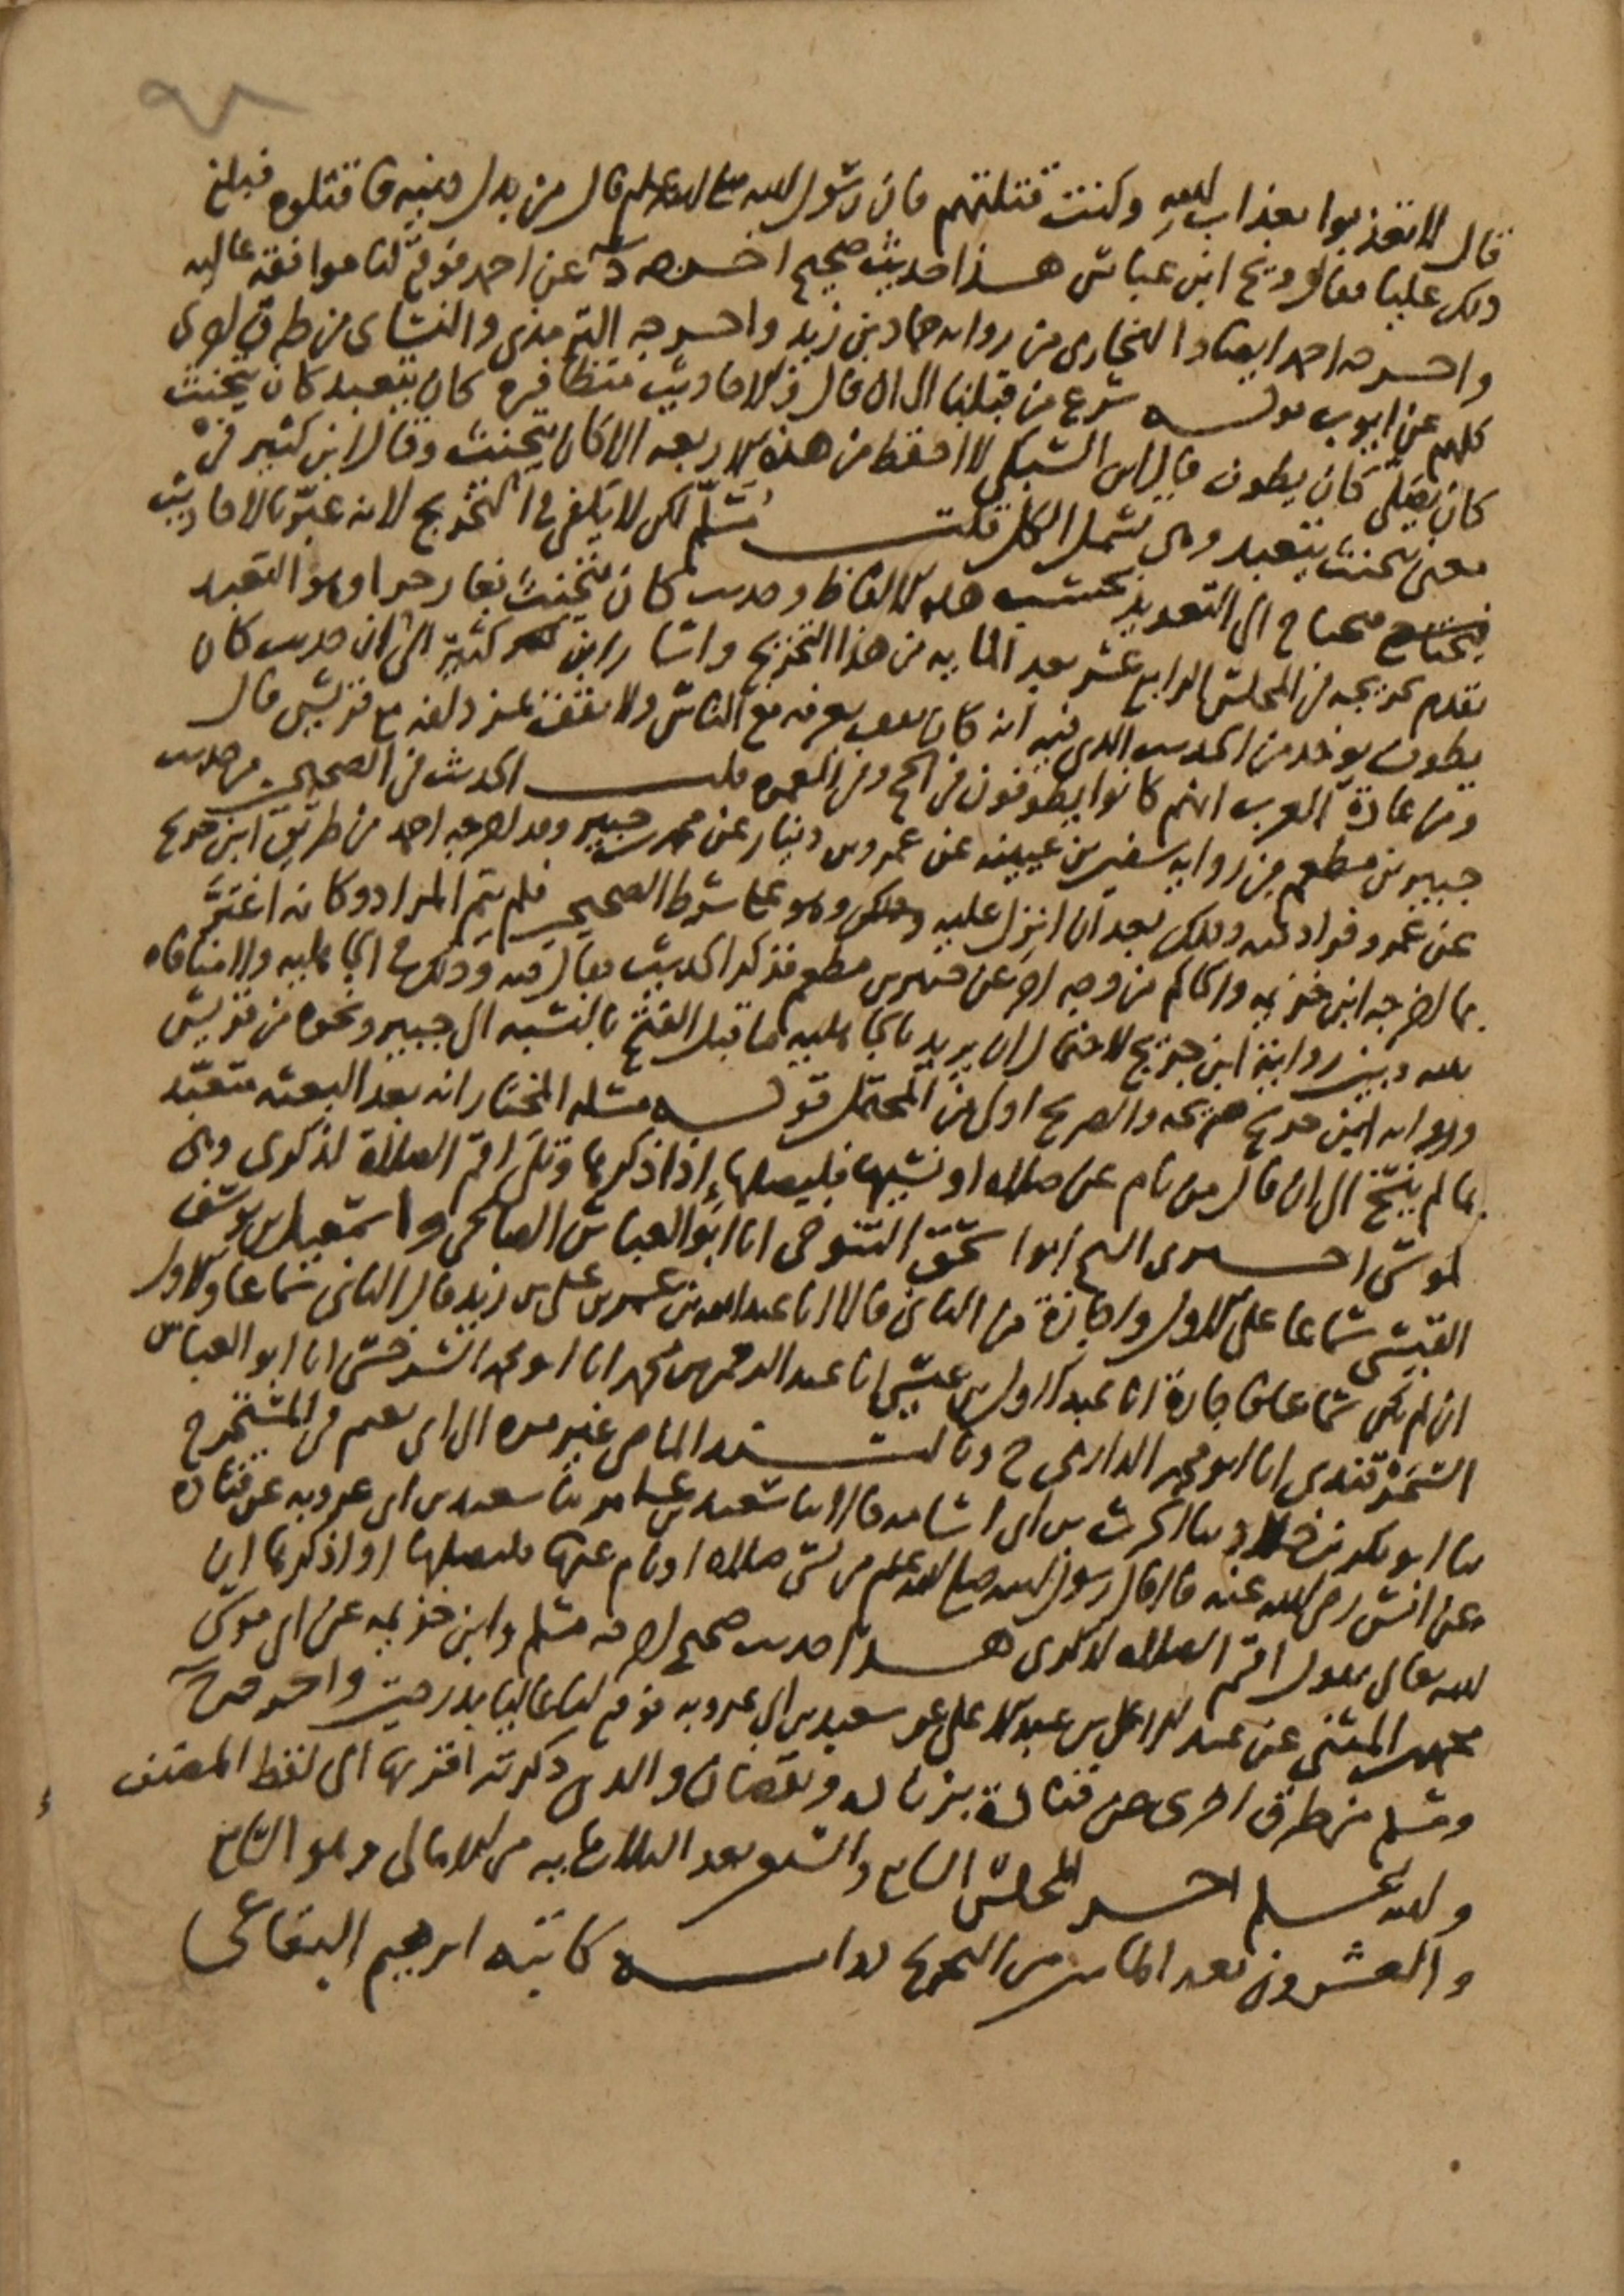 قال لا تعذبوا بعذاب الله وكنت قتلتهم فان رسول الله صلى الله عليه وسلم قال من بدل دينه فاقتلوه فبلغ
ذلك عليا فقال ويح ابن عباس هذا حديث صحيح اخرجه د عن احمد فوقع لنا موافقة عالية
واخرجه احمد ايضا والبخاري من رواية حماد بن زيد واخرجه الترمذي والنسائي من طرق اخرى
كلهم عن ايوب قوله شرع من قبلنا الى ان قال والاحاديث متظافرة كان يتعبد كان يتحنث
كان يصلي كان يطوف قال ابن السبكي لا احفظ من هذه الاربعة الا كان يتحنث وقال ابن كثير في
معنى يتحنث يتعبد وهي تشمل الكل قلت مسلم لكن لا يكفي في التخريج لانه عبر بالاحاديث
فيحتاج الى التعديد بحسب هذه الالفاظ وحديث كان يتحنث بغار حرا وهو التعبد
تقدم تخريجه في المجلس الرابع عشر بعد الماية من هذا التخريج واشار ابن كثير الى ان حديث كان
يطوف يوخذ من الحديث الذي فيه انه كان يقف بعرفة مع الناس ولا يقف بمزدلفة مع قريش قال
ومن عادة العرب انهم كانوا يطوفون في الحج وفي العمرة قلت الحديث في الصحيحين من حديث
جبير بن مطعم من رواية سفين بن عيينة عن عمرو بن دينار عن محمد بن جبير وقد اخرجه احمد من طريق ابن جريج
عن عمرو فزاد فيه وذلك بعد ان انزل عليه وهو على شرط الصحيح فلم يتم المراد وكانه اغتر
بما اخرجه ابن خزيمة والحاكم من وجه اخر عن جبير بن مطعم فذكر الحديث فقال فيه وذلك في الجاهلية ولا منافاة
بينه وبين رواية ابن جريج لاحتمال ان يريد بالجاهلية ما قبل الفتح بالنسبة الى جبير ونحوه من قريش
ورواية ابن جريج صريحة والصريح اولى من المحتمل قوله مسئلة المختار انه بعد البعثة متعبد
بما لم ينسخ الى ان قال من نام عن صلاة او نسيها فليصلها اذا ذكرها وتلى اقم الصلاة لذكري وهي
لموسى اخبرني الشيخ ابو اسحق التنوخي انا ابو العباس الصالحي واسمعيل بن يوسف
القيسي سماعا على الاول واجازة من الثاني قالا انا عبد الله بن عمر بن علي بن زيد قال الثاني سماعا والاول
ان لم يكن سماعا فاجازة انا عبد الاول بن عيسى انا عبد الرحمن بن محمد انا ابو محمد السرخسي انا ابو العباس
السمرقندي انا ابو محمد الدارمي ح وبالسند الماضي غير مرة الى ابي نعيم في المستخرج
ثنا ابو بكر بن خلاد ثنا الحرث بن ابي اسامة قالا ثنا سعيد بن عامر ثنا سعيد بن ابي عروبة عن قتادة
عن انس رضي الله عنه قال قال رسول الله صلى الله عليه وسلم من نسي صلاة او نام عنها فليصلها اذا ذكرها ان
الله تعالى يقول اقم الصلاة لذكري هذا حديث صحيح اخرجه مسلم وابن خزيمة عن ابي موسى
محمد بن المثنى عن عبد الاعلى بن عبد الاعلى عن سعيد بن ابي عروبة فوقع لنا عاليا بدرجتين واخرجه خ
ومسلم من طرق اخرى عن قتادة بزيادة ونقصان والذي ذكرته اقربها الى لفظ المصنف
والله اعلم اخر المجلس السابع والستين بعد الثلاثماية من الامالي وهو الثامن
والعشرون بعد الماية من التخريج رواية كاتبه ابرهيم البقاعي